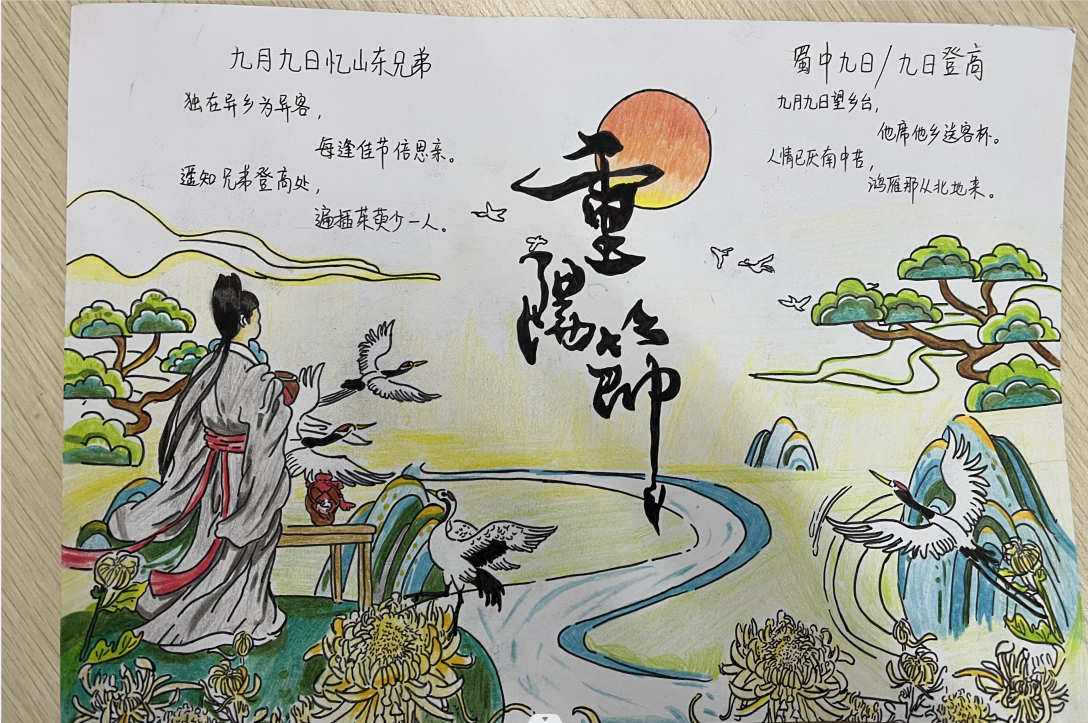 九月九日忆山东兄弟
独在异乡为异客，
每逢佳节倍思亲。
遥知兄弟登高处，
遍插茱萸少一人。
重陽節
蜀中九日/九日登高
九月九日望乡台，
他席他乡送客杯。
人情已厌南中苦，
鸿雁那从北地来。